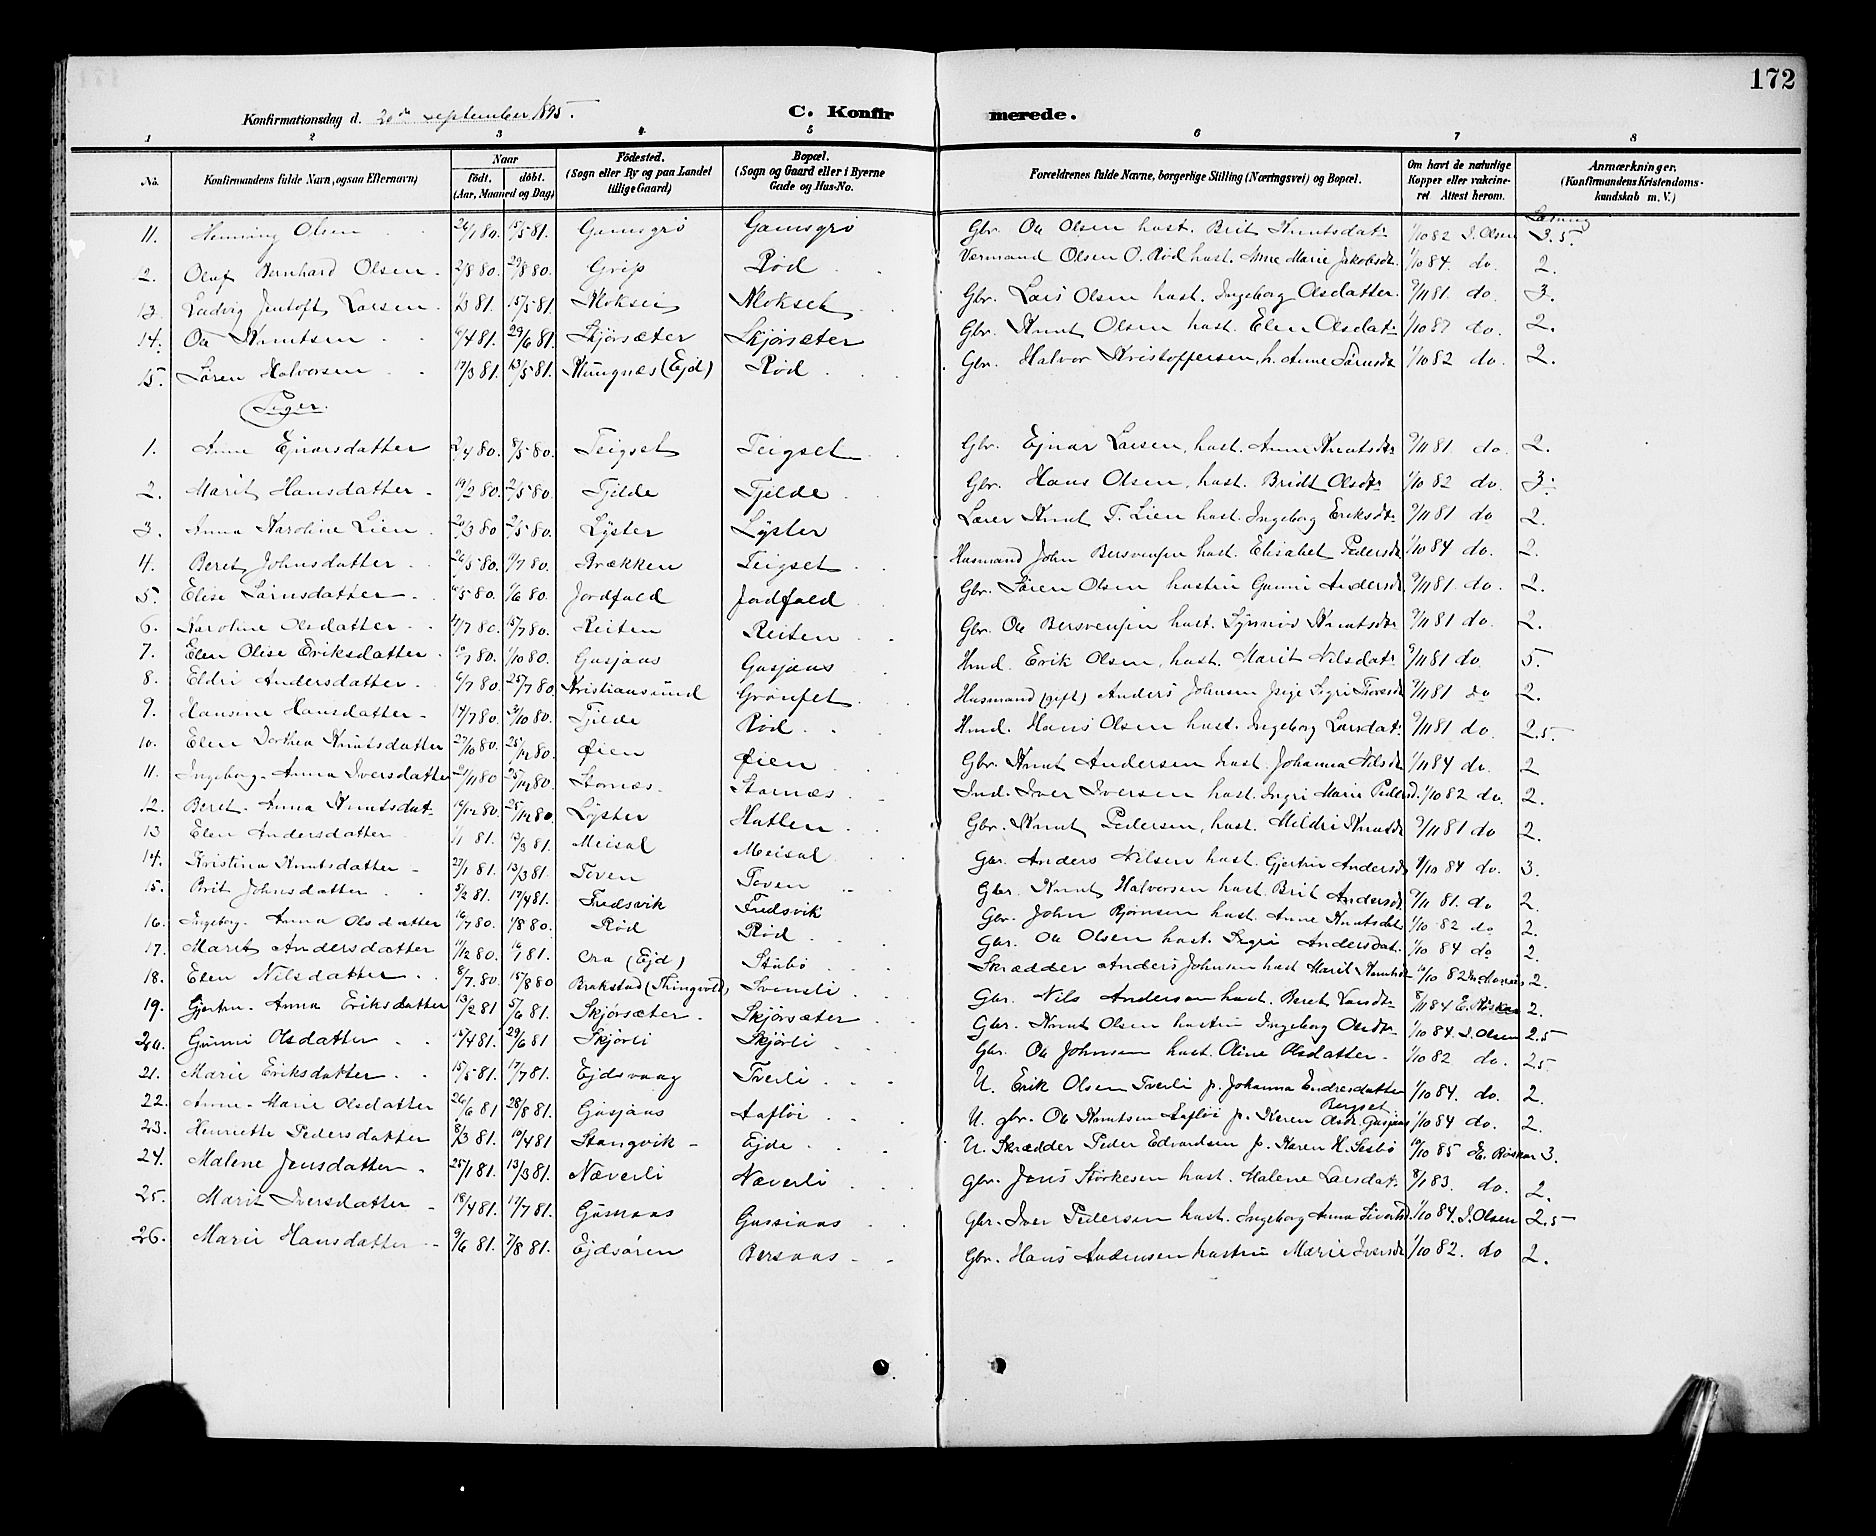 172
Konfirmationsdag d. 20de september 1895.
C. Konfirmerede.
1 2 3 4. 5 6 7 8
No. Konfirmandens fulde Navn, ogsaa Efternavn) Naar Födt. döbt. (Aar, Maaned og Dag) Födested. (Sogn eller By og paa Landet tillige Gaard) Bopæl. (Sogn og Gaard eller i Byerne Gade og Hus-No. Forældrenes fulde Navne, borgerlige Stilling (Næringsvei) og Bopæl. Om havt de naturlige Kopper eller vakcineret Attest herom. Anmærkninger. (Konfirmandens Kristendomskundskab m. V.)
11. Henning Olsen 26/1 80. 15/5 81. Gamsgrö Gamsgrö Gbr. Ola Olsen hust. Brit Knutsdatr 1/10 82 I. Olsen Læsning 3.5.
2. Oluf Bernhard Olsen 2/8 80. 29/8 80. Grip Röd Vermand Olsen O. Röd hust. Anne Marie Jakobsdt. 1/10 84. do. 2.
13. Ludvig Jentoft Larsen 1/3 81. 15/5 81. Mokset Mokset Gbr. Lars Olsen hust. Ingeborg Olsdatter. 9/11 81. do. 3.
14. Ola Knutsen 6/4 81. 29/6 81. Skjörsæter Skjörsæter Gbr. Knut Olsen hust. Elen Olsdatr 1/10 87 do. 2.
15. Sören Halvorsen 17/3 81. 13/5 81. Kungnæs (Ejd) Röd Gbr. Halvor Kristoffersen, h. Anne Sörensdt 1/10 82 do. 2.
Piger.
1. Anne Ejnarsdatter 2/4 80. 8/5 80. Teigset Teigset Gbr. Ejnar Larsen, hust. Anne Knutsdtr 9/11 81. do. 2.
2. Marit Hansdatter 19/2 80. 2/5 80. Tjelde Tjelde Gbr. Hans Olsen, hust. Bridt Olsdtr 1/10 82 do. 3.
3. Anna Karoline Lien 20/3 80 2/5 80. Lyster Lyster Lærer Knut T. Lien hust. Ingeborg Eriksdtr 9/11 81 do 2.
4. Beret Johnsdatter 26/5 80. 11/7 80. Brækken Teigset Husmand John Bersvensen hust. Elisabet Pedersdt 1/10 84 do. 2.
5. Elise Sörensdatter 10/5 80. 6/6 80. Jordfald Jordfald Gbr. Sören Olsen hustru Gunni Andersdt 9/11 81 do. 2.
6. Karoline Olsdatter 4/7 80. 15/7 80. Reiten Reiten Gbr. Ola Bersvensen hust. Synnöv Knutsdtr 9/11 81 do. 2.
7. Elen Olise Eriksdatter 10/7 80. 1/10 80. Gusjaas Gusjaas Hmd. Erik Olsen, hust. Marit Nilsdatr 9/11 81 do. 5.
8. Eldri Andersdatter 6/7 80. 25/7 80. Kristianssund Grönset Husmand (gift) Anders Johnsen pige Sigri Toresdt 9/11 81 do 2.
9. Hansine Hansdatter 14/7 80. 31/10 80. Tjelde Röd Hmd. Hans Olsen hust. Ingeborg Larsdatr 9/11 81 do 2.5.
10. Elen Dorthea Knutsdatter 27/10 80. 25/12 80. Øien Øien Gbr. Knut Andersen hust. Johanna Nilsdt 1/11 84 do. 2
11. Ingeborg Anna Iversdatter 21/11 80 25/12 80. Stornæs Stornæs Ind. Iver Iversen hust. Ingri Marie Pedersd. 1/10 82 do. 2.
12. Beret Anna Knutsdatr 19/12 80. 25/12 80. Lyster Hatlen Gbr. Knut Pedersen, hust. Mildri Knutsdt 9/11 81 do 2.
13 Elen Andersdatter 1/1 81. 19/3 81. Meisal Meisal Gbr. Anders Nilsen hust. Gjertru Andersdt 1/10 84 do. 3.
14. Kristina Knutsdatter 27/1 81. 13/3 81. Toven Toven Gbr. Knut Halvorsen hust. Brit Andersdt 9/11 81. do 2.
15. Brit Johnsdatter 5/2 81. 17/4 81. Fredsvik Fredsvik Gbr. John Björnsen hust. Anne Knutsdatr 1/10 82 do 2.
16. Ingeborg Anna Olsdatter 16/7 80. 1/8 80. Röd Röd Gbr. Ola Olsen hust. Sigri Andersdat. 1/10 84 do 2.
17. Marit Andersdatter 11/12 80. Ora (Ejd) Stubö Skrædder Anders Johnsen hust Marit Knutsdt 2.
18. Elen Nilsdatter 8/7 80 15/8 80 Bakstad (Thingvold) Svensli Gbr. Nils Andersen hust. Beret Larsdtr 8/11 84 E. Röskar 2.
19. Gjertru Anna Eriksdatter 13/2 81 5/6 81. Skjörsæter Skjörsæter Gbr. Knut Olsen hustru Ingeborg Olsdtr 1/10 84. I. Olsen 2.5
20. Gunni Olsdatter 15/4 81. 29/6 81 Skjörli Skjörli Gbr. Ola Johnsen hust. Oline Olsdatter 1/10 82 do. 2.5
21. Marie Eriksdatter 15/5 81. 17/7 81. Ejdsvaag Tverli U. Erik Olsen Tverli p. Johanna Endresdatter Bergset 1/10 84. do. 2.
22. Anne Marie Olsdatter 26/6 81 28/8 81. Gusjaas Aaflöi U. gbr. Ola Knutsen Aaflöi p. Karen Olsdt. Gusjaas 1/10 84 do. 2.
23. Henriette Pedersdatter 8/3 81. 10/4 81 Stangvik Ejde U. Skrædder Peder Edvardsen p. Karen H. Sesbö 19/10 85 E. Röskar 3.
24. Malene Jensdatter 25/1 81. 13/3 81. Næverli Næverli gbr. Jens Störkesen hust. Malene Larsdatr 8/1 83. do. 2.
25. Marit Iversdatter 18/4 81. 17/7 81. Gusiaas Gussiaas gbr. Iver Pedersen hust. Ingeborg Anna Sivertsd. 1/10 84. I. Olsen 2.5
26. Marie Hansdatter 9/6 81. 7/8 81. Ejdsören Bersaas Gbr. Hans Andersen hustru Marie Iversdt 1/10 82. do 2.